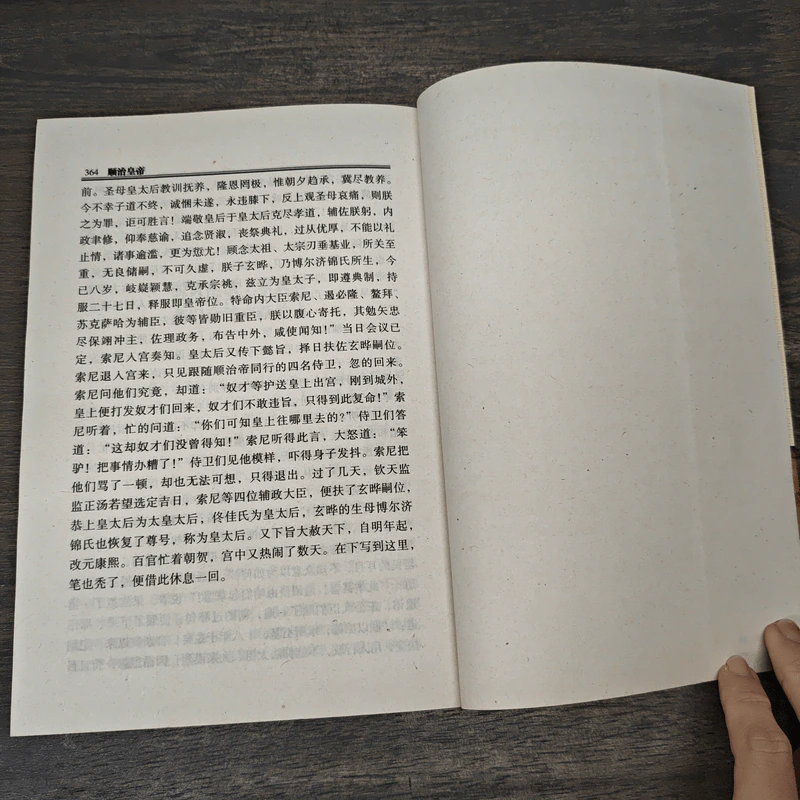 364 顺治皇帝
前。圣母皇太后教训抚养，隆恩罔极，惟朝夕趋承，冀尽教养。
今不幸子道不终，诚悃未遂，永违膝下，反上观圣母哀痛，则朕
之为罪，讵可胜言！端敬皇后于皇太后克尽孝道，辅佐朕躬，内
政聿修，仰奉慈谕，追念贤淑，丧祭典礼，过从优厚，不能以礼
止情，诸事逾滥，更为愆尤！顾念太祖、太宗刃垂基业，所关至
重，无良储嗣，不可久虚，朕子玄晔，乃博尔济锦氏所生，今
已八岁，岐嶷颖慧，克承宗祧，兹立为皇太子，即遵典制，持
服二十七日，释服即皇帝位。特命内大臣索尼、遏必隆、鳌拜、
苏克萨哈为辅臣，彼等皆勋旧重臣，朕以腹心寄托，其勉矢忠
尽保翊冲主，佐理政务，布告中外，咸使闻知！”当日会议已
定，索尼入宫奏知。皇太后又传下懿旨，择日扶佐玄晔嗣位。
索尼退入宫来，只见跟随顺治帝同行的四名侍卫，忽的回来。
索尼问他们究竟，却道：“奴才等护送皇上出宫，刚到城外，
皇上便打发奴才们回来，奴才们不敢违旨，只得到此复命！”索
尼听着，忙的问道：“你们可知皇上往哪里去的？”侍卫们答
道：“这却奴才们没曾得知！”索尼听得此言，大怒道：“笨
驴！把事情办糟了！”侍卫们见他模样，吓得身子发抖。索尼把
他们骂了一顿，却也无法可想，只得退出。过了几天，钦天监
监正汤若望选定吉日，索尼等四位辅政大臣，便扶了玄晔嗣位，
恭上皇太后为太皇太后，佟佳氏为皇太后，玄晔的生母博尔济
锦氏也恢复了尊号，称为皇太后。又下旨大赦天下，自明年起，
改元康熙。百官忙着朝贺，宫中又热闹了数天。在下写到这里，
笔也秃了，便借此休息一回。